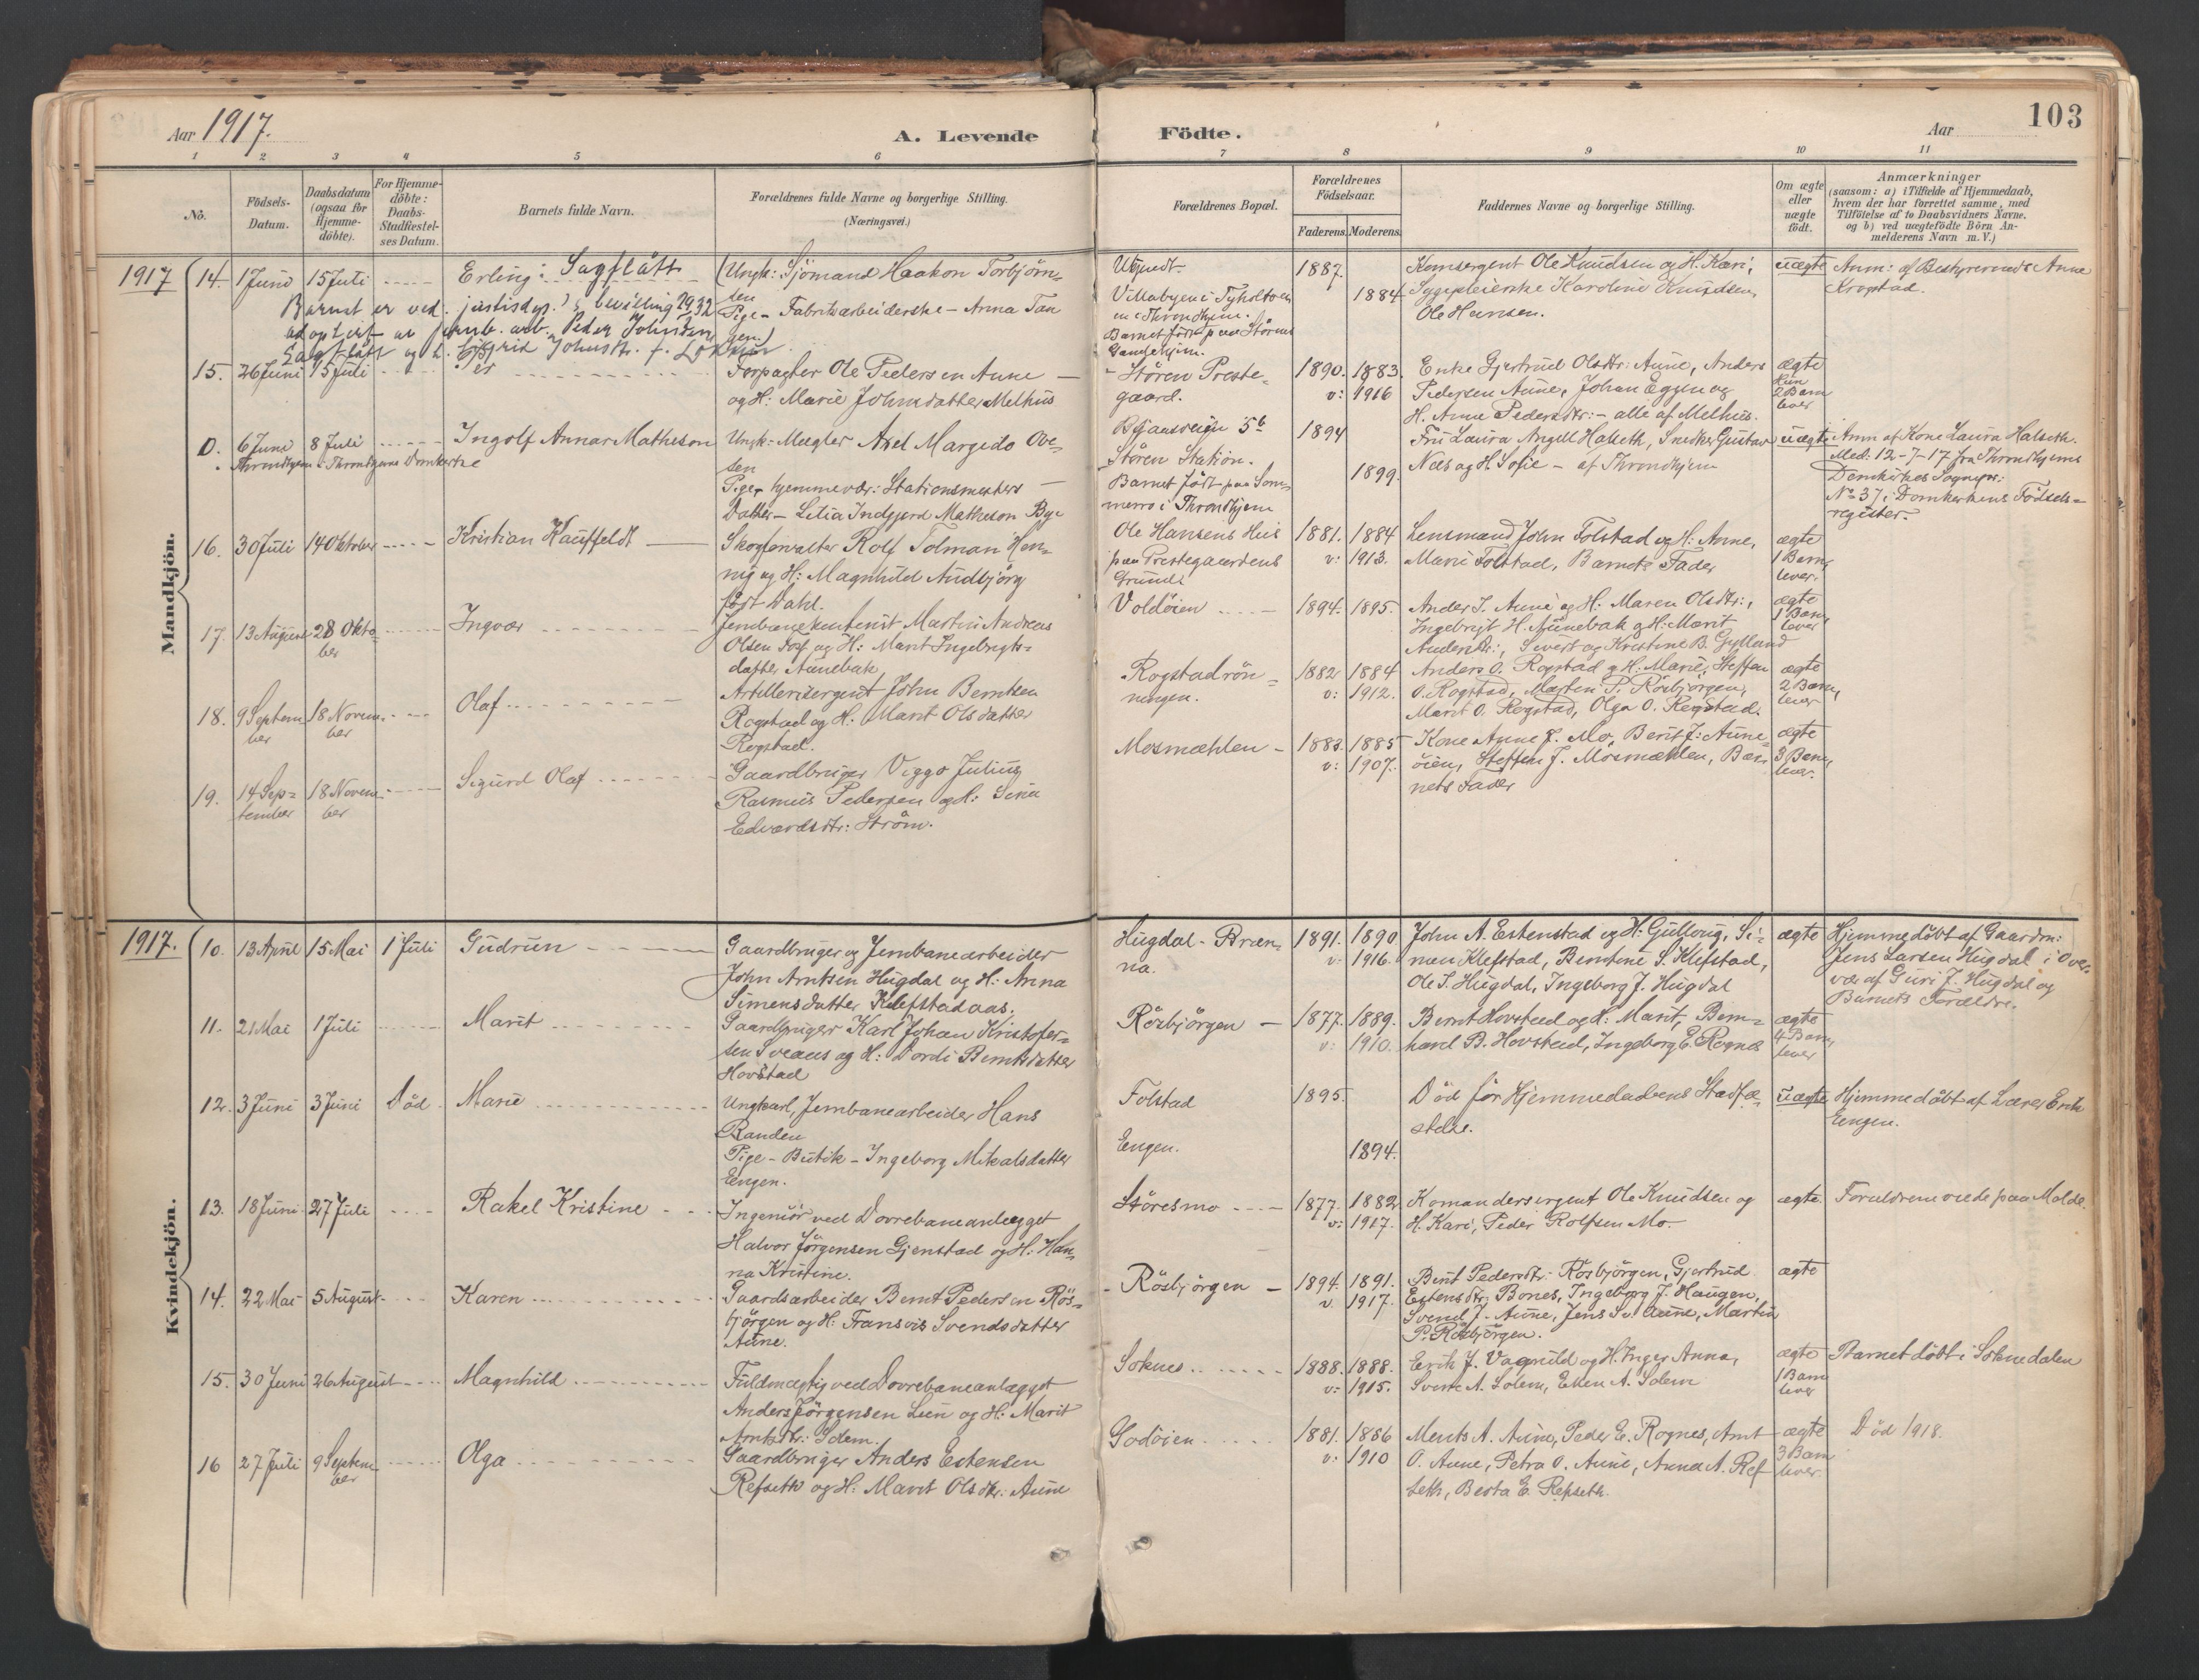 103
Aar 1917.
A. Levende
Födte.
Aar
1
2
3
4
5
6
7
8
9
10
11
No.
Födsels-
Datum.
Daabsdatum
(ogsaa for
Hjemme-
döbte).
For Hjemme-
döbte:
Daabs-
Stadfæstel-
ses Datum.
Barnets fulde Navn.
Forældrenes fulde Navne og borgerlige Stilling.
(Næringsvei.)
Forældrenes Bopæl.
Forældrenes
Födselsaar.
Faderens. Moderens.
Faddernes Navne og borgerlige Stilling.
Om ægte
eller
uægte
födt.
Anmærkninger
(saasom: a) i Tilfælde af Hjemmedaab,
hvem der har forrettet samme, med
Tilföielse af to Daabsvidners Navne.
og b) ved uægtefödte Börn An-
melderens Navn m. V.)
Mandkjön.
1917
14. 1 Juni 15 Juli
Erling: Sagflått
Barnet er ved justisdep.s bevilling 1932
adoptert av jernb. arb. Peder Johnsen
Sagflått og h.
(Ungk: Sjömand Haakon Torbjörn-
sen
Pige - Fabrikarbeiderske - Anna Tan
gen.)
Ubekjendt
Villabyen i Tyholtvei
en i Throndhjem.
Barnet födt paa Stören
Gamlehjem.
1887.
1884
Komsergent Ole Knudsen og H. Kari,
Sygepleierske Karoline Knudsen
Ole Hansen.
uægte
Anm: af Bestyrerinde Anne
Krogstad.
15. 26 Juni 15 Juli
Forpagter Ole Pedersen Aune
og H: Marie Johnsdatter Melhus
Stören Preste-
gaard.
1890. 1883.
v: 1916
Enke Gjertrud Olsdtr: Aune, Anders
Pedersen Aune, Johan Eggen og
H. Anne Pedersdtr: - alle af Melhus.
ægte
2 Barn
lever
0. 6 Juni 8 Juli
Throndhjem i Throndhjems Domkirke
Ingolf Annar Matheson
Ungk: Mægler Axel Margido Ove-
sen
Pige, hjemmevær: Stationsmesters
Datter - Lilia Indgjerd Matheson Bye
Stören Station.
Barnet födt paa Som-
merro i Throndhjem
1894
1899.
Fru Laura Angell Halseth, Snedker Gustav
Næs og H. Sofie - af Throndhjem
uægte
Anm af Kone Laura Halseth.
Med: 12-7-17 fra Throndhjems
Domkirkes Sognepr:
No 37 i Domkirkens Födsels-
register.
16. 30 Juli 14 Oktober
Kristian Kauffeldt
Skogforvalter Rolf Tolman Hen-
nig og H: Magnhild Audbjörg
födt Dahl.
Ole Hansens Hus
paa Prestegaardens
Grund
1881. 1884
v: 1913.
Lensmand John Folstad og H: Anne,
Marie Folstad, Barnets Fader
ægte
1 Barn,
lever.
17. 13 August 28 Okto-
ber
Ingvar
Jernbanekontorist Martin Andreas
Olsen Foss og H: Marit Ingebrigts-
datter Aunebak
Voldöien
1894. 1895.
Anders J. Aune og H: Maren Olsdtr:,
Ingebrigt H. Aunebak og H: Marit
Andersdtr:, Sivert og Kristine B. Gylland
ægte
1 Barn,
lever
18. 9 Septem
ber
18 Novem-
ber
Olaf
Artillerisergent John Berntsen
Rogstad og H: Marit Olsdatter
Rogstad.
Rogstadrön-
ningen.
1882 1884
v: 1912.
Anders O. Rogstad og H: Marie, Steffen
O. Rogstad, Marten P. Rösbjörgen,
Marit O. Rogstad, Olga O. Rogstad.
ægte
2 Barn,
lever
19. 14 Sep-
tember
18 Novem-
ber
Sigurd Olaf
Gaardbruger Viggo Julius
Rasmus Pedersen og H: Sina
Edvardsdtr: Ström.
Mosmæhlen
1883. 1885
v: 1907.
Kone Anne J. Mo, Berit J: Aune-
öien, Steffen J. Mosmæhlen, Bar-
nets Fader
ægte
3 Barn,
lever.
Kvindekjön.
1917.
10. 13 April 15 Mai 1 Juli
Gudrun
Gaardbruger og Jernbanearbeider
John Arntsen Hugdal og H: Anna
Simensdatter Klefstadaas.
Hugdal-Bræn-
na.
1891. 1890
v: 1916.
John A. Estenstad og H: Gullaug, Si-
men Klefstad, Berntine S. Klefstad,
Ole S. Hugdal, Ingeborg J. Hugdal
ægte
Hjemmedöbt af Gaardm:
Jens Larsen Hugdal i Over-
vær af Guri J. Hugdal og
Barnets Forældre.
11. 21 Mai 1 Juli
Marit
Gaardbruger Karl Johan Kristofer-
sen Sveaas og H: Dordi Berntsdatter
Hovstad
Rösbjörgen
1877. 1889.
v: 1910.
Bernt Hovstad og H: Marit, Bern-
hard B. Hovstad, Ingeborg E. Rognes
ægte
4 Barn,
lever
12. 3 Juni 3 Juni Död.
Marie
Ungkarl, Jernbanearbeider Hans
Randen
Pige - Butik - Ingeborg Mikalsdatter
Engen.
Folstad
Engen.
1895.
1894.
Död för Hjemmedaabens Stadfæ-
stelse.
uægte
Hjemmedöbt af Lærer Erik
Engen.
13. 18 Juni 27 Juli
Rakel Kristine
Ingeniör ved Dovrebaneanlægget
Halvor Jörgensen Gjenstad og H: Han-
na Kristine.
Störesmo
1877. 1882
v: 1917.
Komandersergent Ole Knudsen og
H. Kari, Peder Rolfsen Mo.
ægte
Forældrene viede paa Molde.
14. 22 Mai 5 August
Karen
Gaardsarbeider Bernt Pedersen Rös-
björgen og H: Fransvis Svendsdatter
Aune.
Rösbjörgen
1894. 1891.
v. 1917.
Berit Pedersdtr: Rösbjörgen, Gjertrud
Estensdtr: Bones, Ingeborg J. Haugen,
Svend J. Aune, Jens Sv. Aune, Martin
P. Rösbjörgen.
ægte
15. 30 Juni 26 August
Magnhild
Fuldmægtig ved Dovrebaneanlægget
Anders Jörgensen Lien og H: Marit
Arntsdtr: Solem.
Soknes
1888. 1888.
v: 1915.
Erik J. Vagnild og H. Inger Anna,
Svend A. Solem, Ellen A. Solem
ægte
1 Barn
lever
Barnet döbt i Soknedalen
16 27 Juli 9 Septem
ber
Olga
Gaardbruger Anders Estensen
Refseth og H: Marit Olsdtr: Aune
Godöien
1881. 1886
v: 1910
Ments A. Aune, Peder E. Rognes, Arnt
O. Aune, Petra O. Aune, Anna A. Ref
seth, Berta E. Refseth.
ægte
3 Barn
lever.
Död 1918.